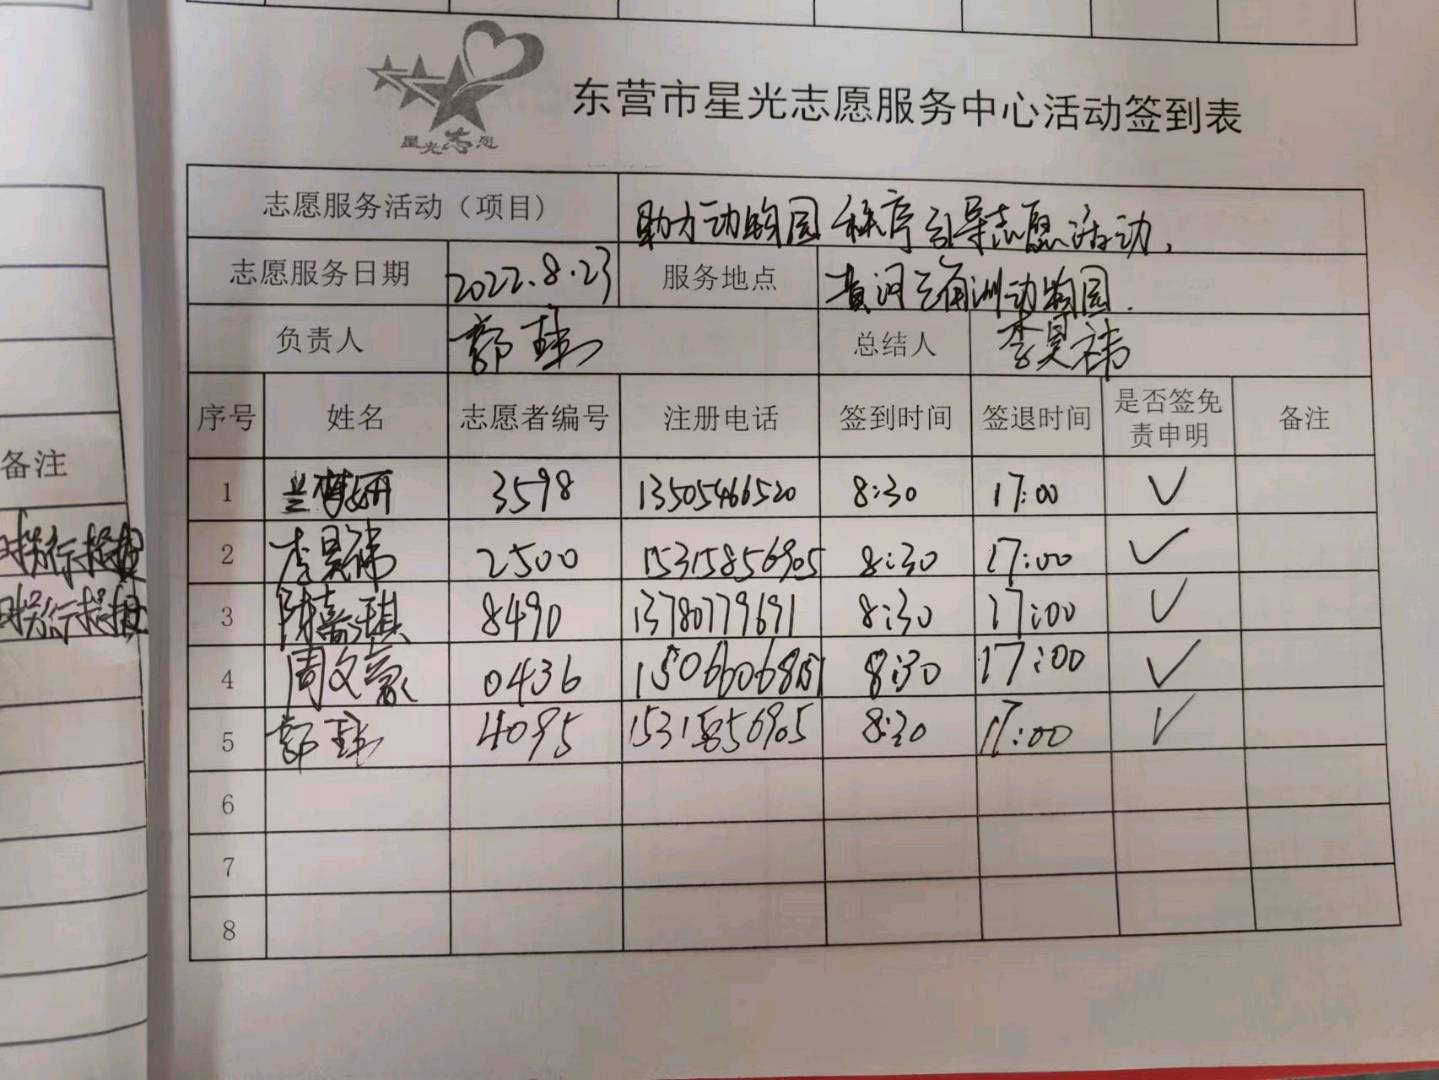 星光志愿
东营市星光志愿服务中心活动签到表
志愿服务活动（项目） 助力动物园秩序引导志愿活动.
志愿服务日期 2022.8.23 服务地点 黄河三角洲动物园.
负责人 郭 总结人 李昊祎
序号 姓名 志愿者编号 注册电话 签到时间 签退时间 是否签免责申明 备注
1 兰梦妍 3598 13505466520 8:30 17:00 ✓
2 李昊祎 2500 15315856905 8:30 17:00 ✓
3 陈嘉琪 8490 13780779691 8:30 17:00 ✓
4 周文豪 0436 15066068151 8:30 17:00 ✓
5 郭 4095 15315856905 8:30 17:00 ✓
6
7
8
备注